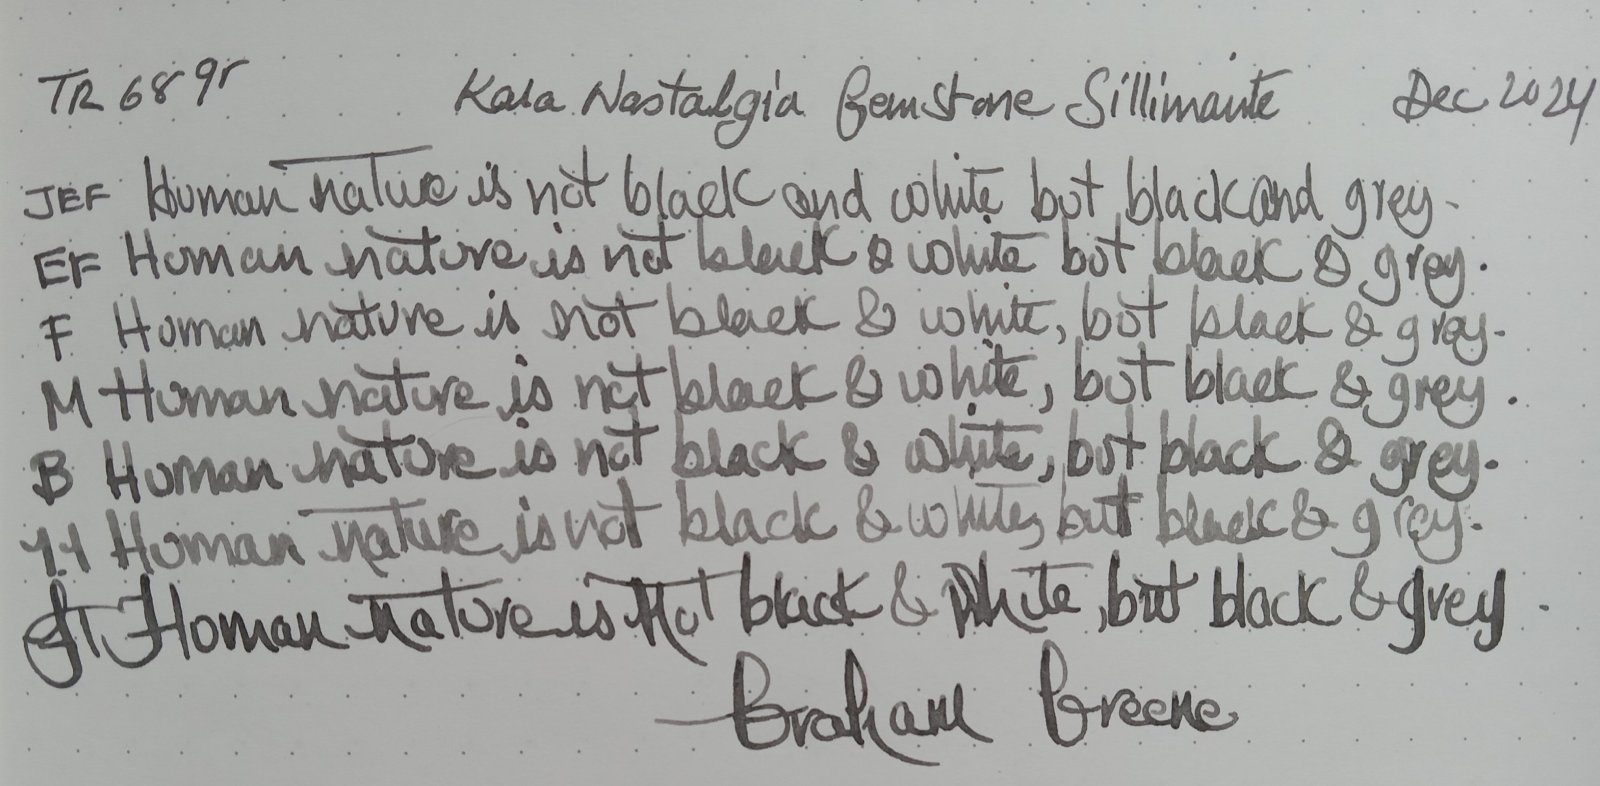 TR 68 gr Kala Nostalgia Gemstone Sillimanite Dec 2024
JEF Human nature is not black and white but black and grey.
EF Human nature is not black & white but black & grey.
F Human nature is not black & white, but black & grey.
M Human nature is not black & white, but black & grey.
B Human nature is not black & white, but black & grey.
Human nature is not black & white, but black & grey.
Human nature is not black & white, but black & grey.
Graham Greene